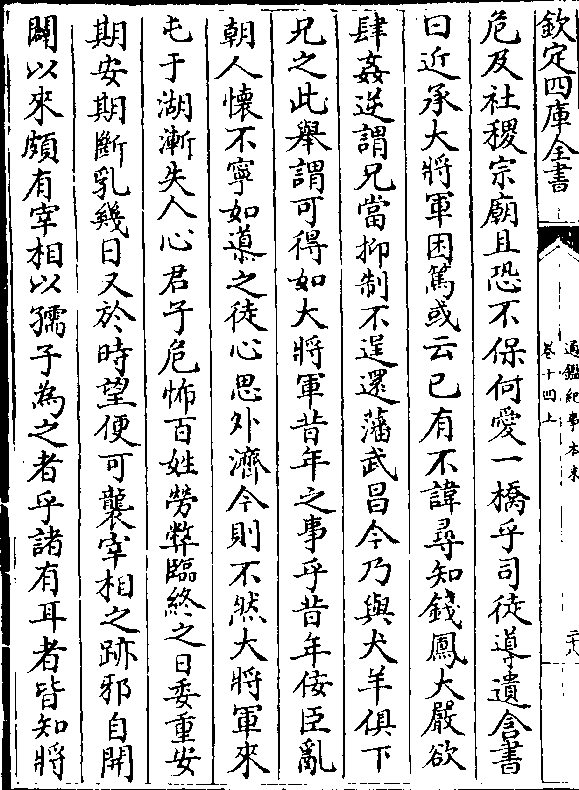 欽定四庫全書
通鑑紀事本末
卷十四上
二十八
危及社稷宗廟且恐不保何愛一橋乎司徒導遺含書
曰近承大將軍困篤或云已有不諱尋知錢鳳大嚴欲
肆姦逆謂兄當抑制不逞還藩武昌今乃與犬羊俱下
兄之此舉謂可得如大將軍昔年之事乎昔年佞臣亂
朝人懷不寧如導之徒心思外濟今則不然大將軍來
屯于湖漸失人心君子危怖百姓勞弊臨終之日委重安
期安期斷乳幾日又於時望便可襲宰相之跡邪自開
闢以來頗有宰相以孺子為之者乎諸有耳者皆知將